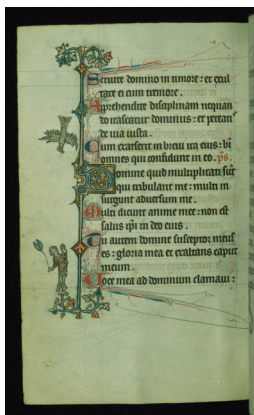 Seruite domino in timore : et exul
tate ei cum tremore .
Apprehendite disciplinam nequan
do irascatur dominus : et pereatis
de uia iusta .
Cum exarserit in breui ira eius : bi
omnes qui confidunt in eo . ps.
Domine quid multiplicati sūt
qui tribulant me : multi in
surgunt aduersum me .
Multi dicunt anime mee : non est
salus ipi in deo eius .
Tu autem domine susceptor meus
es : gloria mea et exaltans caput
meum .
Uoce mea ad dominum clamaui :